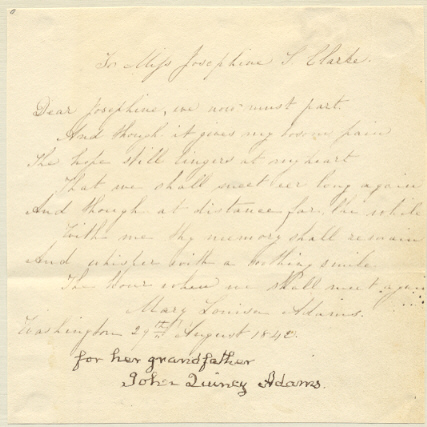 To Miss Josephine S. Clarke.
Dear Josephine, we now must part.
And though it gives my bosom pain
The hope still lingers at my heart
That we shall meet ere long again
And though at distance far the while
With me thy memory shall remain
And whisper with a soothing smile
The hour when we shall meet again
Mary Louisa Adams.
Washington 29th August 1842.
for her grandfather
John Quincy Adams.